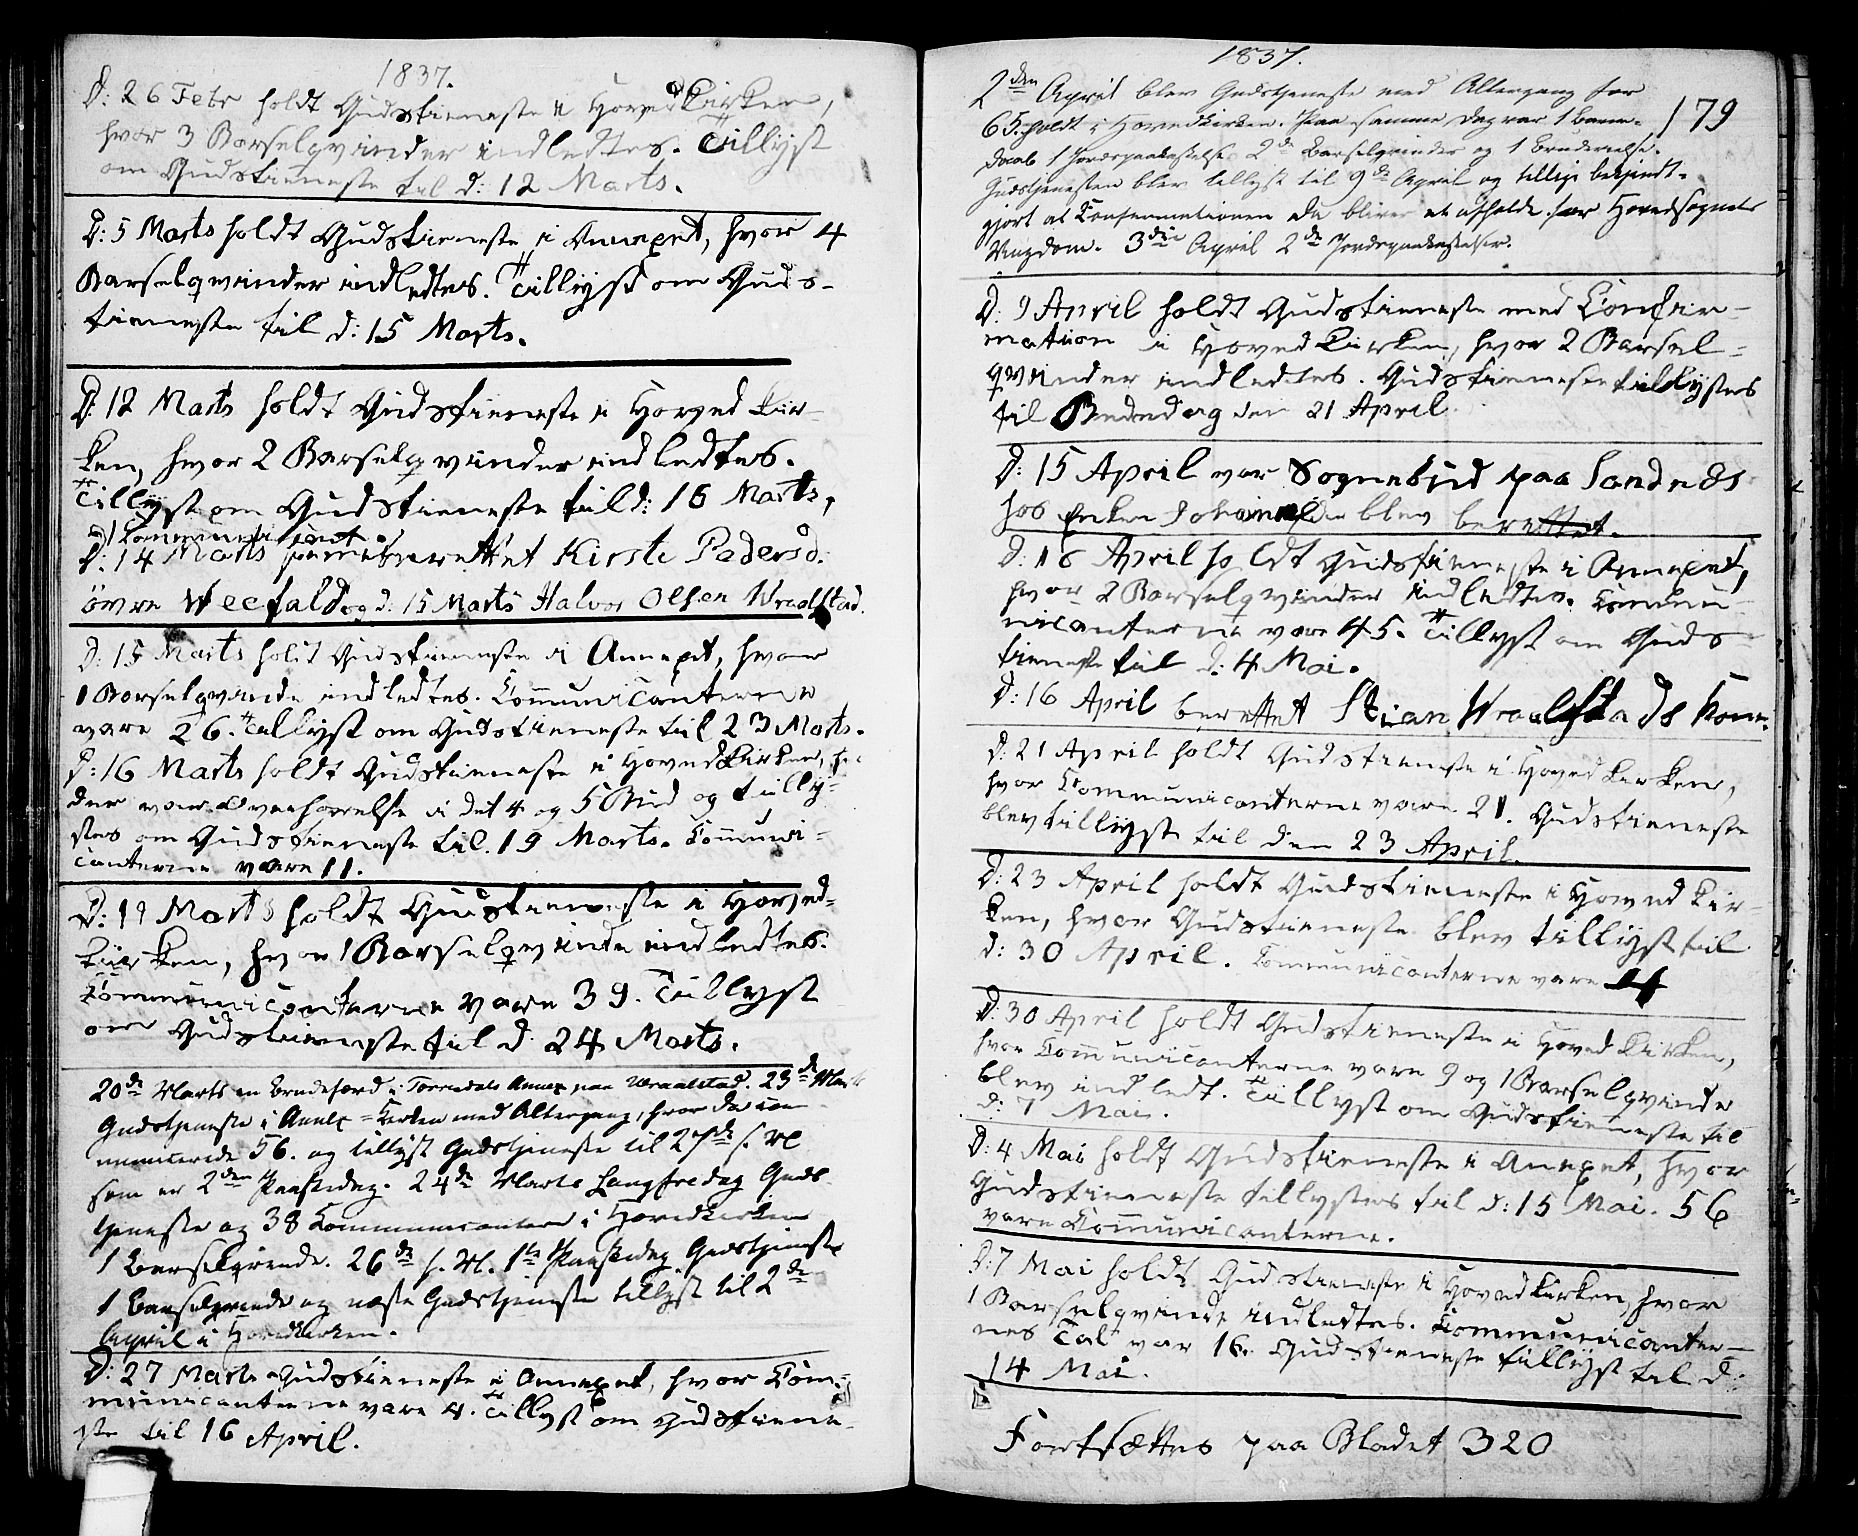 1837.
D: 26 Febr holdt Gudstieneste i Hoved Kirken,
hvor 3 Barselqvinder indledtes. Tillyst
om Gudstieneste til d: 12 Marts.
D: 5 Marts holdt Gudstieneste i Annexet, hvor 4
Barselqvinder indledtes. Tillyst om Guds-
tieneste til d: 15 Marts.
D: 12 Marts holdt Gudstieneste i Hoved Kir-
ken, hvor 2 Barselqvinder indledtes.
Tillyst om Gudstieneste til d: 16 Marts,
D: 14 Marts berettet Kirsti Pedersd.
övre Veefald og d: 15 Marts Halvor Olsen Vraalstad.
D: 15 Marts holdt Gudstieneste i Annexet, hvor
1 Barselqvinde indledtes. Communicanterne
vare 26. Tillyst om Gudstieneste til 23 Marts.
D: 16 Marts holdt Gudstieneste i Hoved Kirken,
der var Overhørelse i det 4 og 5 Bud og tilly-
stes om Gudstieneste til 19 Marts. Communi-
canterne vare 11.
D: 19 Marts holdt Gudstieneste i Hoved-
kirken, hvor 1 Barselqvinde indledtes.
Communicanterne vare 39. Tillyst
om Gudstieneste til d. 24 Marts.
20de Marts en Brudefærd i Torrisdals Annex paa Vraalstad. 23de Marts
Gudstjeneste i Annex-Kirken med Altergang, hvor da com-
municerede 56. og tillyst Gudstjeneste til 27de s. M.
som er 2den Paaskedag. 24de Marts Langfredag Guds-
tjeneste og 38 Communicantere i Hovedkirken
1 Barselqvinde. 26de s. M. 1ste Paaskedag Gudstjeneste
1 Barselqvinde og næste Gudstjeneste tillyst til 2den
April i Hovedkirken.
D: 27 Marts Gudstieneste i Annexet, hvor Com-
municanterne vare 4. Tillyst om Gudstiene-
ste til 16 April.
1837.
179
2den April blev Gudstjeneste med Altergang for
65. holdt i Hovedkirken. Paa samme Dag var 1 Barne-
daab 1 Jordspaakastelse 2de Barselqvinder og 1 Brudevielse.
Gudstjenesten blev tillyst til 9de April og tillige bekjendt-
gjort at Confirmationen da bliver at afholde for Hovedsognets
Ungdom. 3die April 2de Jordspaakastelser.
D: 9 April holdt Gudstieneste med Confir-
mation i Hoved Kirken, hvor 2 Barsel-
qvinder indledtes. Gudstieneste tillystes
til Bededag den 21 April.
D: 15 April var Sognebud paa Sandnæs
hos Enken Johanne der blev berettet.
D: 16 April holdt Gudstieneste i Annexet,
hvor 2 Barselqvinder indledtes. Commu-
nicanterne vare 45. Tillyst om Guds-
tieneste til d: 4 Mai.
D: 16 April berettet Stian Vraalstads Kone.
D: 21 April holdt Gudstieneste i Hoved Kirken,
hvor Communicanterne vare 21. Gudstieneste
blev tillyst til den 23 April.
D: 23 April holdt Gudstieneste i Hoved Kir-
ken, hvor Gudstieneste blev tillyst til
d: 30 April. Communicanterne vare 14
D: 30 April holdt Gudstieneste i Hoved Kirken,
hvor Communicanterne vare 9 og 1 Barselqvinde
blev indledt. Tillyst om Gudstieneste til
d: 7 Mai.
D: 4 Mai holdt Gudstieneste i Annexet, hvor
Gudstieneste tillystes til d: 15 Mai. 56
vare Communicanterne.
D: 7 Mai holdt Gudstieneste i Hoved Kirken, hvor
1 Barselqvinde indledtes. Communicanter-
nes Tal var 16. Gudstieneste tillyst til d:
14 Mai.
Fortsættes paa Bladet 320